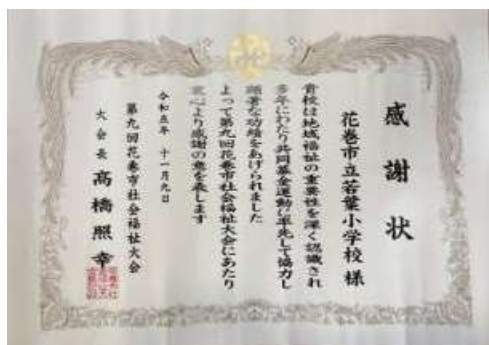 感謝状
花巻市立若葉小学校 様
貴校は地域福祉の重要性を深く認識され
多年にわたり共同募金運動に率先して協力し
顕著な功績をあげられました
よって第九回花巻市社会福祉大会にあたり
衷心より感謝の意を表します
令和五年 十一月九日
第九回花巻市社会福祉大会
大会長 高橋照幸